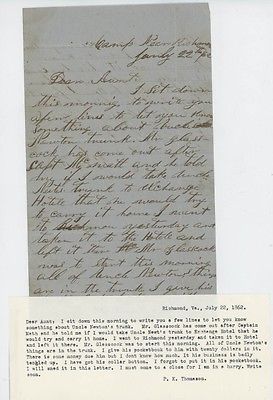 Camp Near Richmond
July 22th /62
Dear Aunt.
I sit down
this morning to write you
a few lines to let you know
something about uncle
Newton trunk. Mr glass
cock has come out after
Capt and he told
me if I would take uncle
trunk to Exchange
Hotel that he would
try to carry it home I went
to yesterday and
taken it to the Hotel and
left it Mr glasscock
was to start this morning
all of uncle Newton things
are in the trunk I give his
Richmond, Va., July 22, 1862.
Dear Aunt: I sit down this morning to write you a few lines to let you know
something about Uncle Newton's trunk. Mr. Glasscock has come out after Captain
Hath and he told me if I would take Uncle Newt's trunk to Exchange Hotel that he
would try and carry it home. I went to Richmond yesterday and taken it to Hotel
and left it there. Mr. Glasscock was to start this morning. All of Uncle Newton's
things are in the trunk. I give his pocketbook to him with twenty dollars in it.
There is some money due him but I don't know how much. It is business is badly
tackled up. I have got his collar button. I forgot to put it in his pocketbook
I will send it in this letter. I must come to a close for I am in a hurry. Write
soon.
P. K. Thomason.